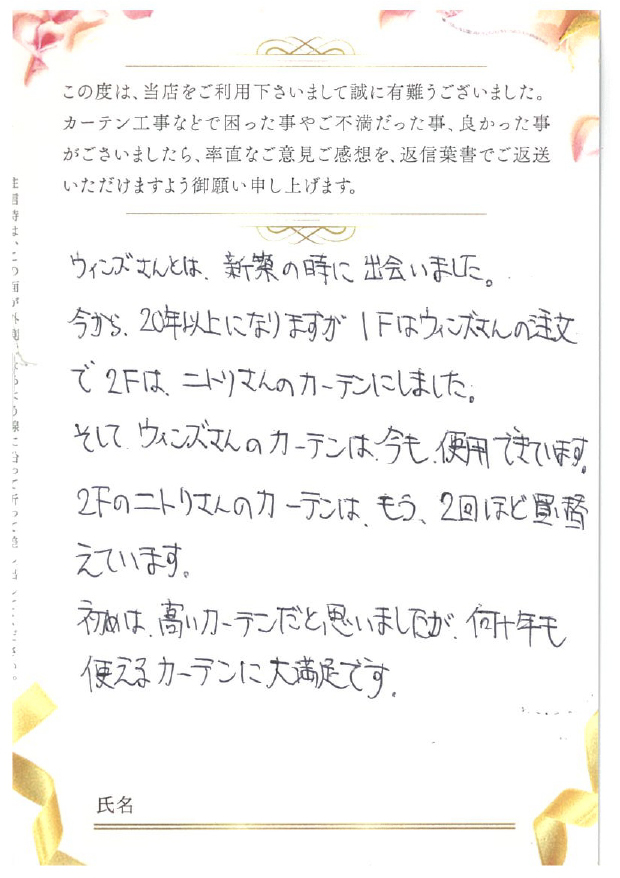 この度は、当店をご利用下さいまして誠に有難うございました。
カーテン工事などで困った事やご不満だった事、良かった事
がございましたら、率直なご意見ご感想を、返信葉書でご返送
いただけますよう御願い申し上げます。
ウィンズさんとは、新築の時に出会いました。
今から、20年以上になりますが1Fはウィンズさんの注文
で2Fは、ニトリさんのカーテンにしました。
そして、ウィンズさんのカーテンは、今も、使用できています。
2Fのニトリさんのカーテンは、もう、2回ほど買い替
えています。
初めは、高いカーテンだと思いましたが、何十年も
使えるカーテンに大満足です。
氏名